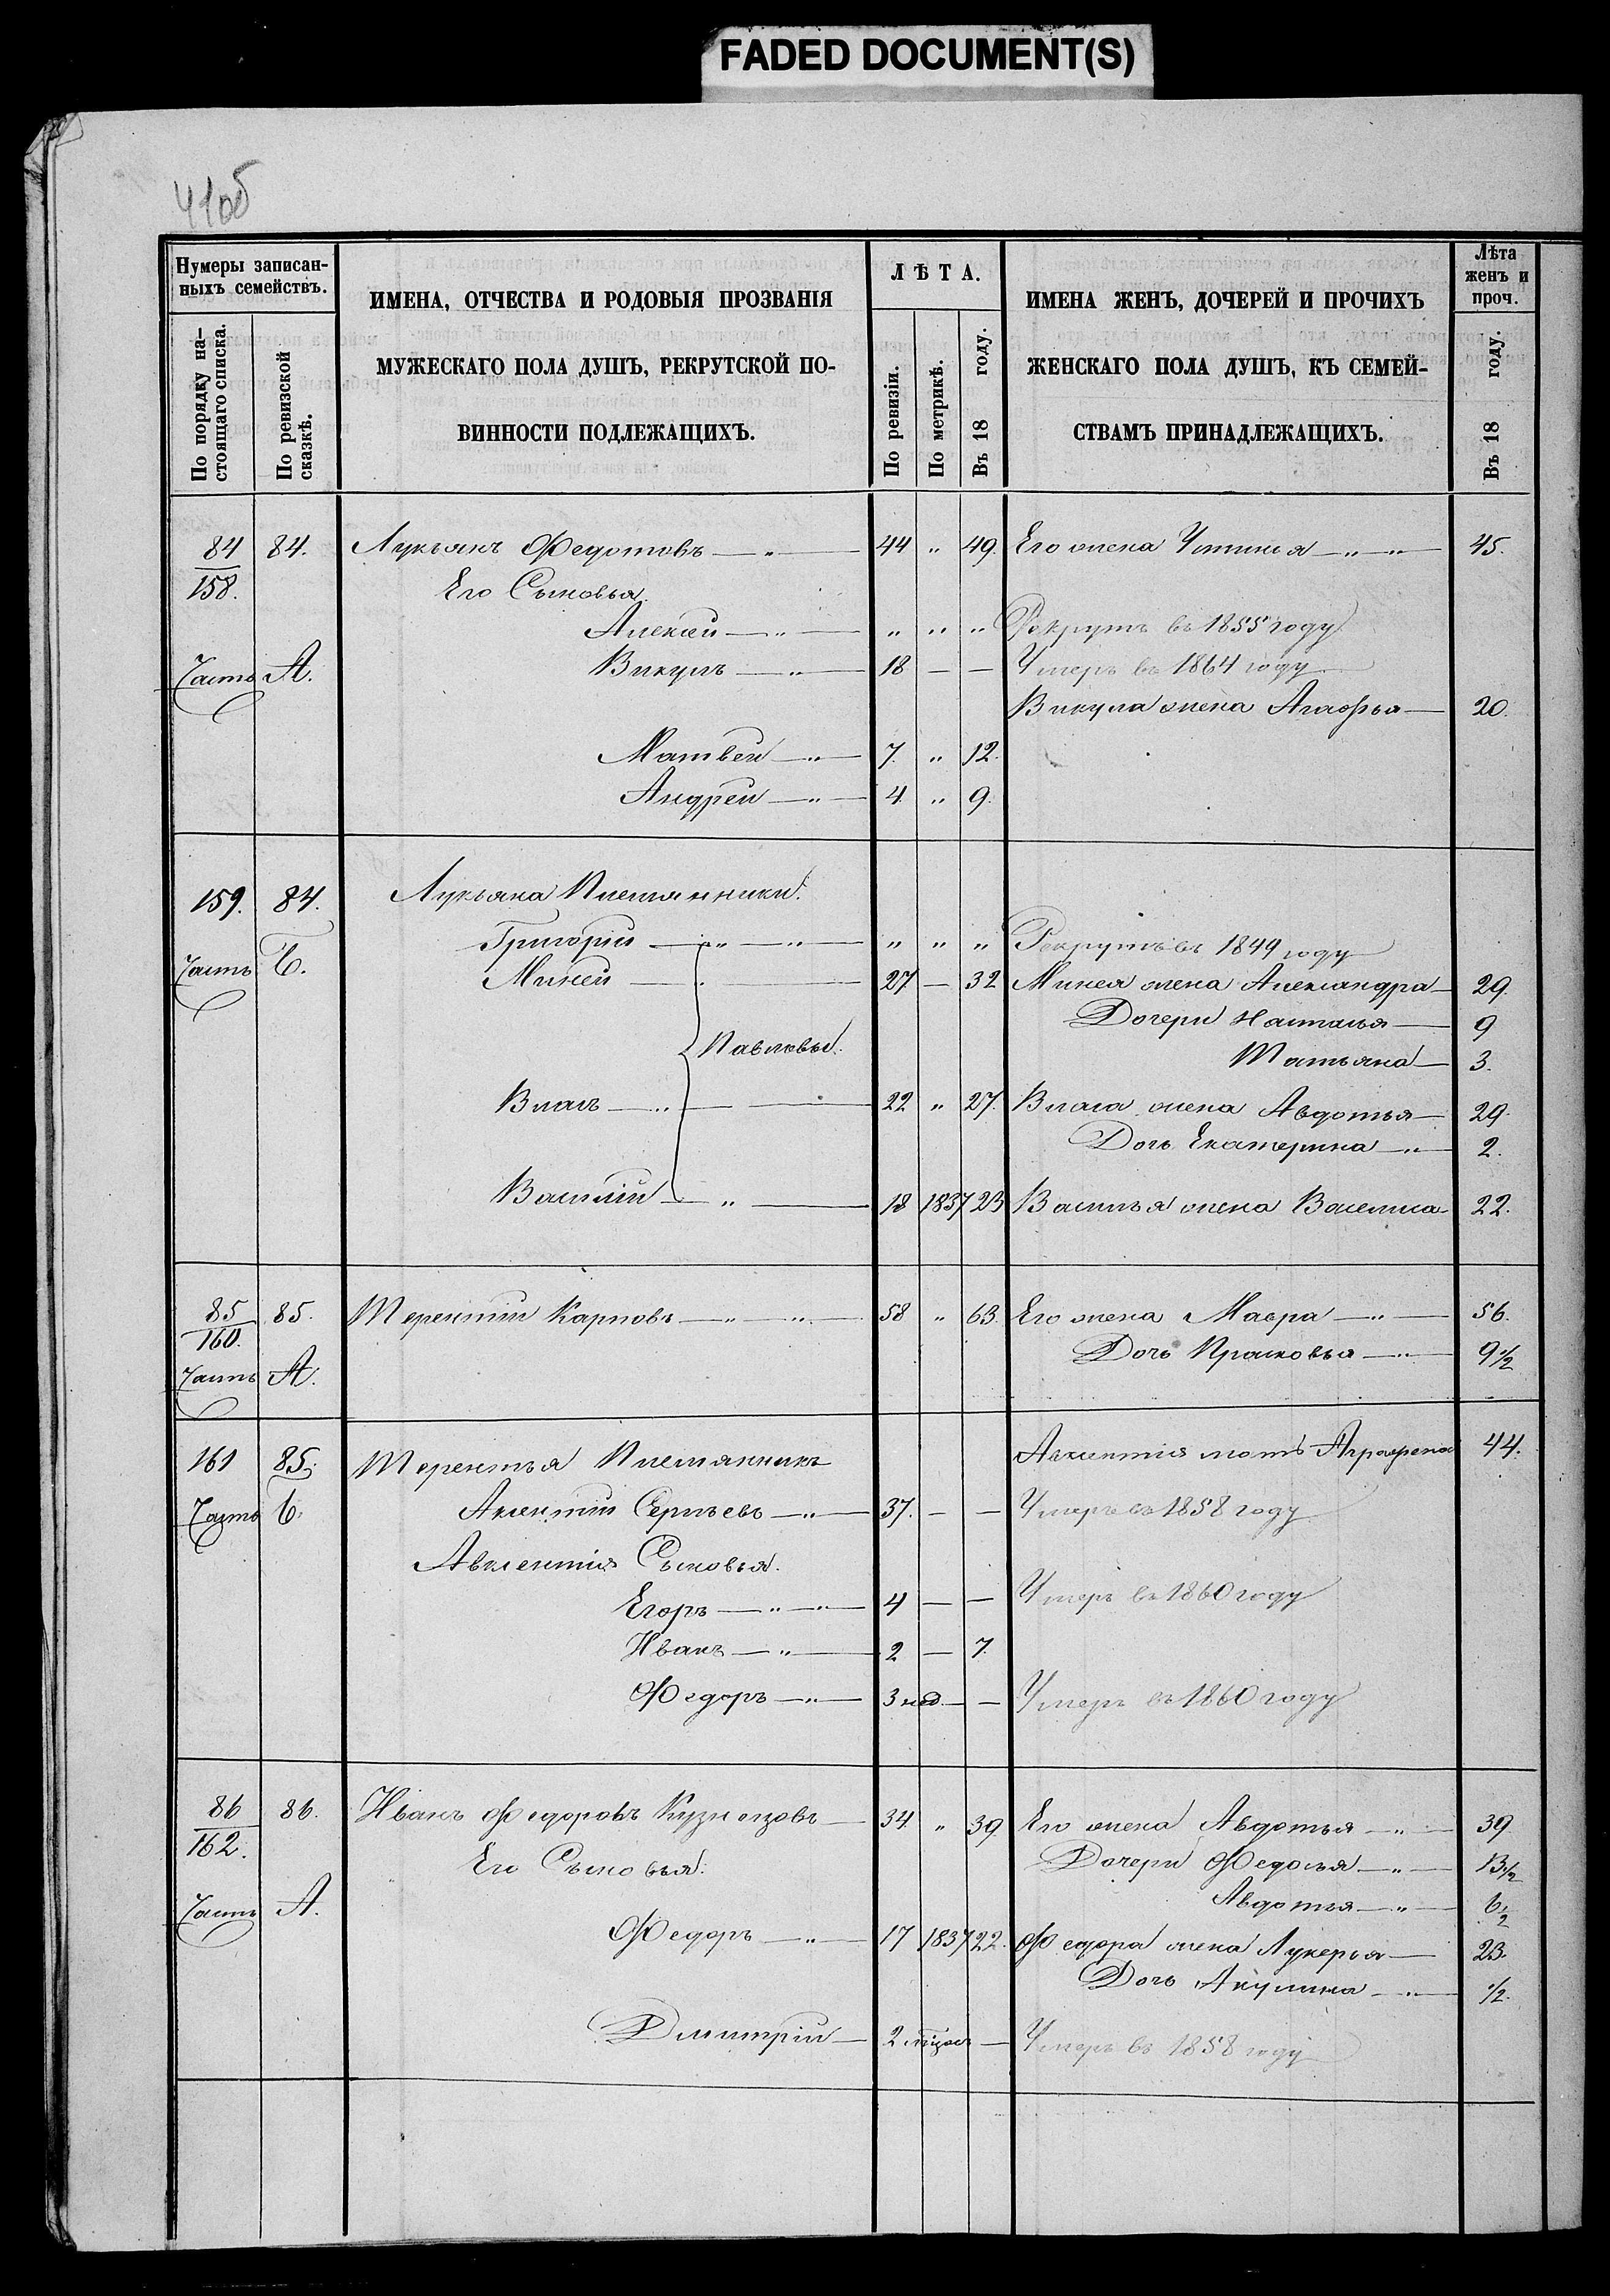 FADED DOCUMENT(S)
41об
Нумеры записан-
ныхъ семействъ.
По порядку на-
стоящаго списка.
По ревизской
сказкѣ.
ИМЕНА, ОТЧЕСТВА И РОДОВЫЯ ПРОЗВАНІЯ
МУЖЕСКАГО ПОЛА ДУШЪ, РЕКРУТСКОЙ ПО-
ВИННОСТИ ПОДЛЕЖАЩИХЪ.
ЛѢТА.
По ревизіи.
По метрикѣ.
Въ 18 году.
ИМЕНА ЖЕНЪ, ДОЧЕРЕЙ И ПРОЧИХЪ
ЖЕНСКАГО ПОЛА ДУШЪ, КЪ СЕМЕЙ-
СТВАМЪ ПРИНАДЛЕЖАЩИХЪ.
Лѣта
женъ и
проч.
Въ 18 году.
84 84. Лукьянъ Федотовъ — „ — 44 „ 49. Его жена Устинья — „ — „ — 45.
158. Его Сыновья.
Алексей — „ — „ „ „ Рекрутъ въ 1855 году
Часть А. Викулъ — „ — 18 — — Умеръ въ 1864 году
Викула жена Агафья — 20.
Матвей — „ — 7. „ 12.
Андрей — „ — 4. „ 9.
159. 84. Лукьяна Племянники.
Григорій — „ — „ — „ „ „ Рекрутъ въ 1849 году
Часть Б. Миней — 27 — 32 Минея жена Александра — 29.
Дочери Наталья — 9
Павловы.
Татьяна — 3.
Власъ — „ — 22 „ 27. Власа жена Авдотья — 29.
Дочь Екатерина — „ — 2.
Василій — „ — 18 1837 23 Василья жена Василиса — 22.
85 85. Терентій Карповъ — „ — „ — 58 „ 63. Его жена Мавра — „ — 56.
160. Дочь Прасковья — „ — 9½
Часть А.
161 85. Терентья Племянникъ Авксентія мать Аграфена 44.
Часть Б. Аксентій Сергѣевъ — „ — 37. — — Умеръ въ 1858 году
Авксентія Сыновья.
Егоръ — „ — „ — 4 — — Умеръ въ 1860 году
Иванъ — „ — 2 — 7.
Федоръ — „ — 3 нед. — — Умеръ въ 1860 году
86 86. Иванъ Федоровъ Кузнецовъ — 34 „ 39. Его жена Авдотья — „ — 39
162. Его Сыновья. Дочери Федосья — „ — 13½
Часть А. Авдотья — „ — 6½
Федоръ — „ — 17 1837 22. Федора жена Лукерья — 23.
Дочь Акулина — „ — ½.
Дмитрій — 2 мѣсяц. — Умеръ въ 1858 году